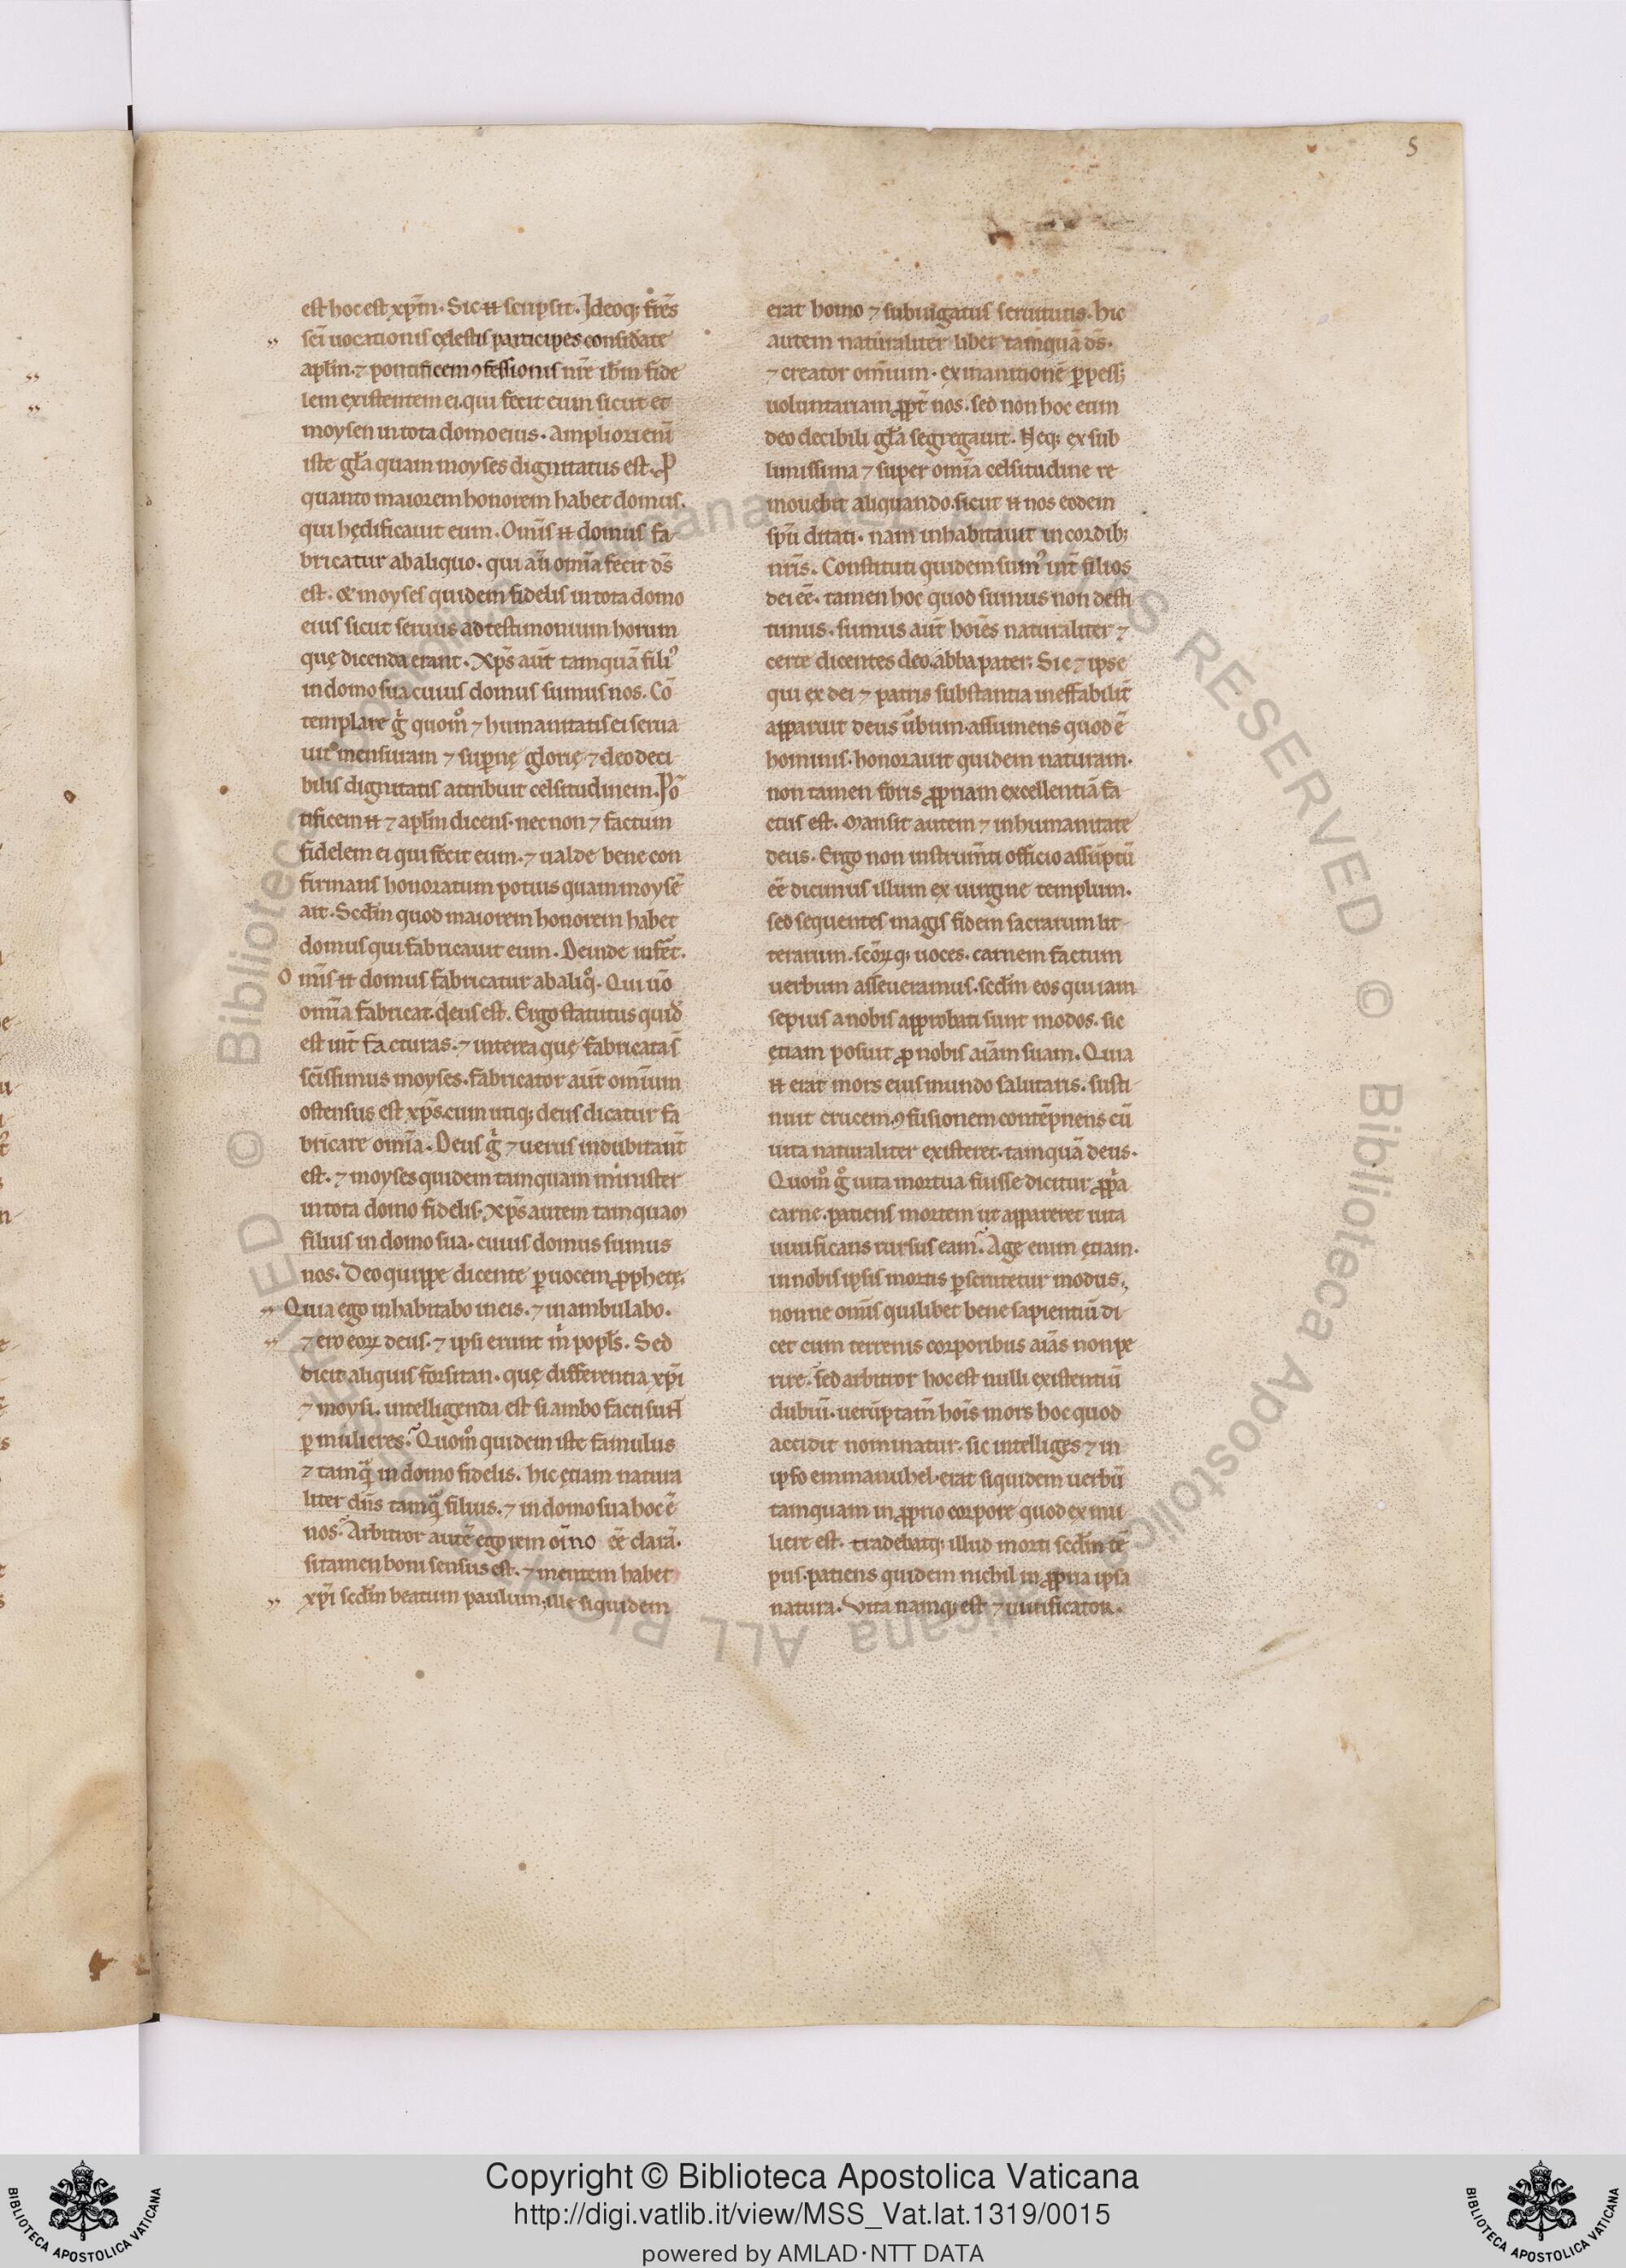 5
est hoc est xp̅m. Sic ꝶ scripsit. Ideoq; fr̅es
sc̅i uocationis cęlestis participes considate
apl̅m. ⁊ pontificem ꝯfessionis nr̅e ih̅m fide
lem existentem ei. qui fecit eum sicut et
moysen in tota domo eius. Ampliori eni̅
iste gl̅a quam moyses dignitatus est. P
quanto maiorem honorem habet domus.
qui hędificauit eum. Omi̅s ꝶ domus fa
bricatur ab aliquo. qui au̅ omi̅a fecit ds̅
est. & moyses quidem fidelis in tota domo
eius sicut seruus ad testimonium horum
quę dicenda erant. Xp̅s aut̅ tamqua̅ fili᾿
in domo sua cuius domus sumus nos. Co̅
templare g̊ quom̊ ⁊ humanitatis ei serua
uit mensuram ⁊ sup̅nę glorię ⁊ deo deci
bilis dignitatis attribuit celsitudinem. Po̅
tificem ꝶ ⁊ apl̅m dicens. nec non ⁊ factum
fidelem ei qui fecit eum. ⁊ ualde bene con
firmans honoratum potius quam moyse̅
ait. Scd̅m quod maiorem honorem habet
domus qui fabricauit eum. Deinde infe̅t.
O mi̅s ꝶ domus fabricatur ab aliq̊. Qui uo̅
omi̅a fabricat. deus est. Ergo statutus quid̅
est int̅ facturas. ⁊ inter ea quę fabricata s̅
sc̅issimus moyses. fabricator aut̅ omi̅um
ostensus est xp̅s. cum utiq; deus dicatur fa
bricare omi̅a. Deus g̊ ⁊ uerus indubitant̅
est. ⁊ moyses quidem tamquam minister
in tota domo fidelis. Xp̅s autem tamquam
filius in domo sua. cuius domus sumus
nos. Deo quippe dicente ꝑ uocem ꝓphetę.
„ Quia ego inhabitabo in eis. ⁊ inambulabo.
„ ⁊ ero eoꝝ deus. ⁊ ipsi erunt m̊ popl̅s. Sed
dicit aliquis forsitan. quę differentia xp̅i
⁊ moysi. intelligenda est si ambo facti sunt̅
ꝑ mulieres. Quom̊ quidem iste famulus
⁊ tamq̅ in domo fidelis. hic ętiam natura
liter dn̅s tamq̅ filius. ⁊ in domo sua hoc e̅
nos. Arbitror aute̅ ego rem oi̅no ee̅ clara̅.
si tamen boni sensus est. ⁊ mentem habet
„ xp̅i scd̅m beatum paulum; ille siquidem
erat homo ⁊ subiugatus seruitutis. hic
autem naturaliter liber tamqua̅ ds̅.
⁊ creator omi̅um. exinanitione̅ ꝑpess;
uoluntariam ꝓpt̅ nos. sed non hoc eum
deo decibili gl̅a segregauit. Neq; ex sub
limissima ⁊ super omi̅a celsitudine re
mouebit aliquando. sicut ꝶ nos eodem
sp̅u ditati. nam inhabitauit in cordib;
nr̅is. Constituti quidem sum᾿ int̅ filios
dei ee̅. tamen hoc quod sumus non desti
timus. sumus aut̅ hoi̅es naturaliter ⁊
certe dicentes deo. abba pater. Sic ⁊ ipse
qui ex dei ⁊ patris substantia ineffabilit̅
apparuit deus u̅bum. assumens quod e̅
hominis. honorauit quidem naturam.
non tamen foris ꝓpriam excellentia̅ fa
ctus est. Mansit autem ⁊ in humanitate
deus. Ergo non instrum̅ti officio assu̅ptu̅
ee̅ dicimus illum ex uirgine templum.
sed sequentes magis fidem sacrarum lit
terarum. sc̅oꝝq; uoces. carnem factum
uerbum asseueramus. scd̅m eos qui iam
sepius a nobis approbati sunt modos. sic
ętiam posuit ꝓ nobis ai̅am suam. Quia
ꝶ erat mors eius mundo salutaris. susti
nuit crucem. ꝯfusionem conte̅pnens cu̅
uita naturaliter existeret. tamqua̅ deus.
Quom̊ g̊ uita mortua fuisse dicitur ꝓp̅a
carne. patiens mortem ut appareret uita
uiuificans rursus eam. Age enim ętiam.
in nobis ipsis mortis ꝑscrutetur modus.
nonne omi̅s quilibet bene sapientiu̅ di
cet cum terrenis corporibus ai̅as non pe
rire. sed arbitror hoc est nulli existentiu̅
dubiu̅. ueru̅ptam̅ hoi̅s mors hoc quod
accidit nominatur. sic intelliges ⁊ in
ipso emmanuhel. erat siquidem uerbu̅
tamquam in ꝓprio corpore quod ex mu
liere est. tradebatq; illud morti scd̅m te̅
pus. patiens quidem nichil in ꝓpria ipsa
natura. Vita namq; est ⁊ uiuificator.
© Biblioteca Apostolica Vaticana ALL RIGHTS RESERVED
© Biblioteca Apostolica Vaticana ALL RIGHTS RESERVED
Copyright © Biblioteca Apostolica Vaticana
http://digi.vatlib.it/view/MSS_Vat.lat.1319/0015
powered by AMLAD·NTT DATA
BIBLIOTECA APOSTOLICA VATICANA
BIBLIOTECA APOSTOLICA VATICANA